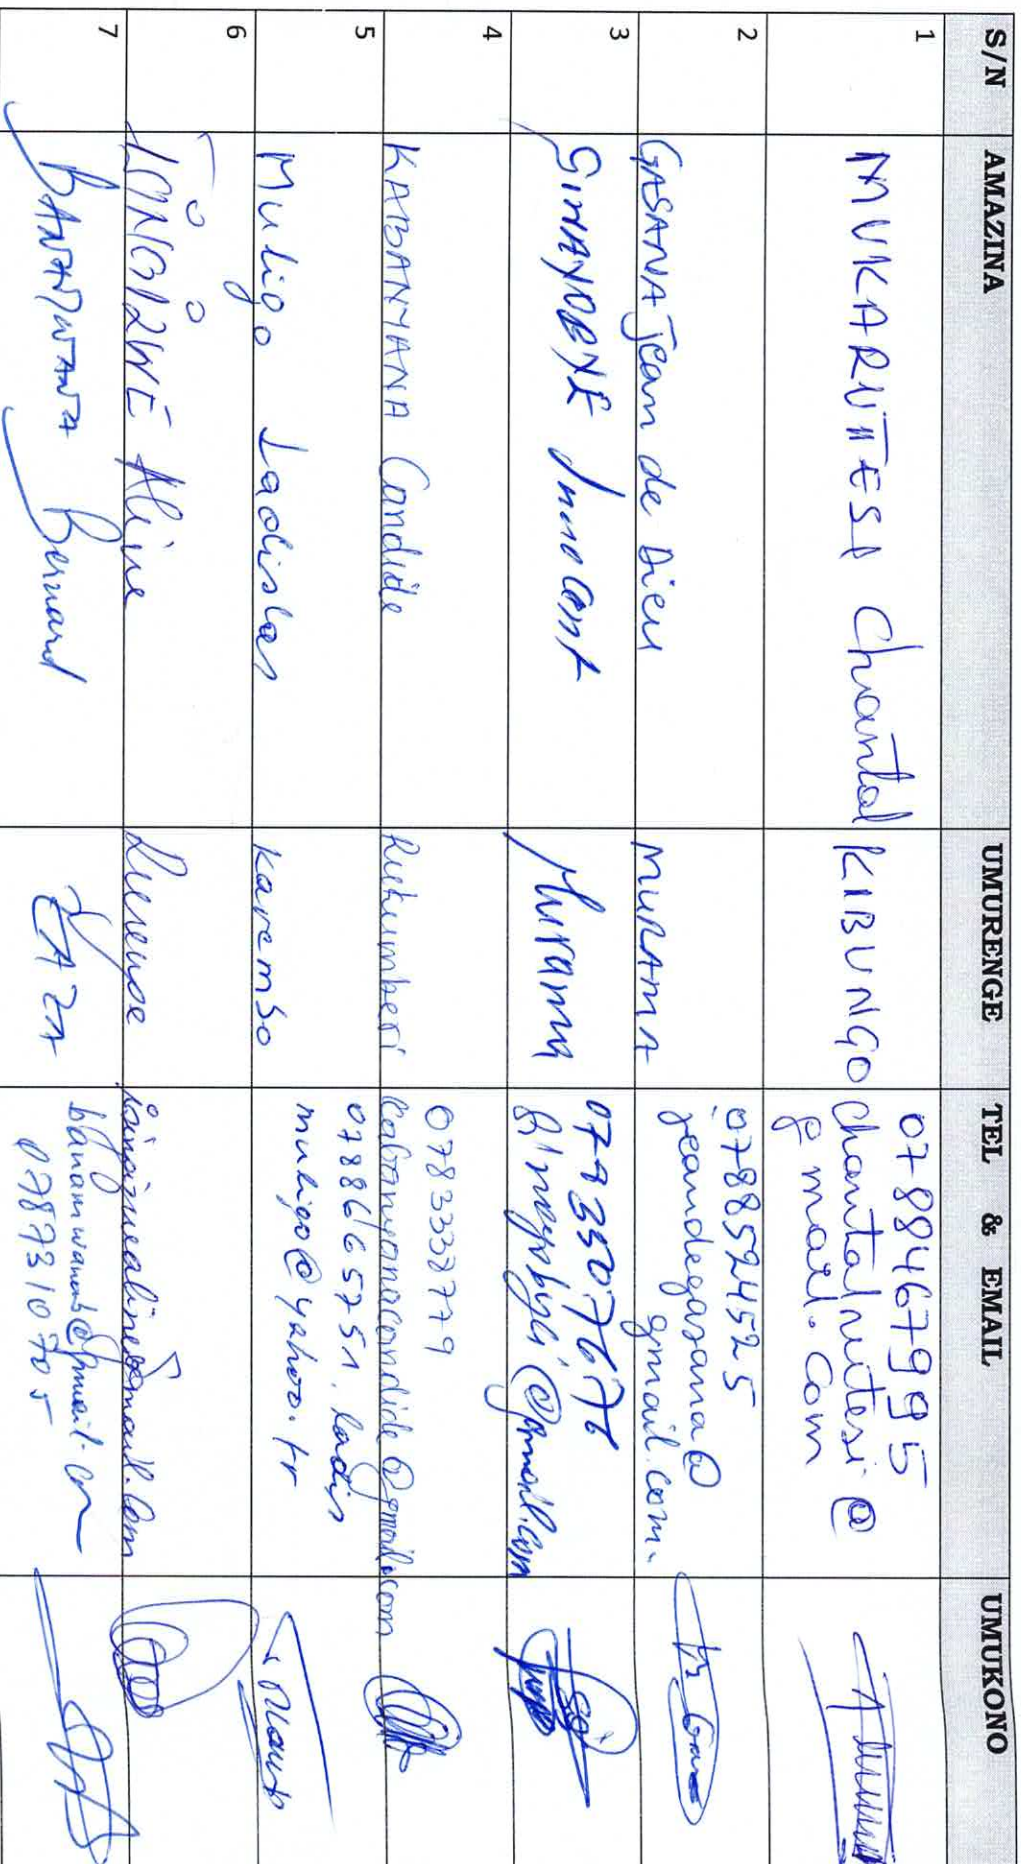 S/N AMAZINA UMURENGE TEL & EMAIL UMUKONO
1 MUKARUTESI Chantal KIBUNGO 0788467995
Chantalrutesi@
gmail.com
2 GASANA Jean de Dieu MURAMA 0788524525
jeandegasana@
gmail.com.
3 Murama
4 KABANYANA Candide Rukumberi 0783338779
cabanyanacandide@gmail.com
5 Muligo Ladislas Karembo 0788665751, ladis
muligo@yahoo.fr
6 Aline Rurenge
7 BANAMWANA Bernard ZAZA banamwanab@gmail.com
0787310705